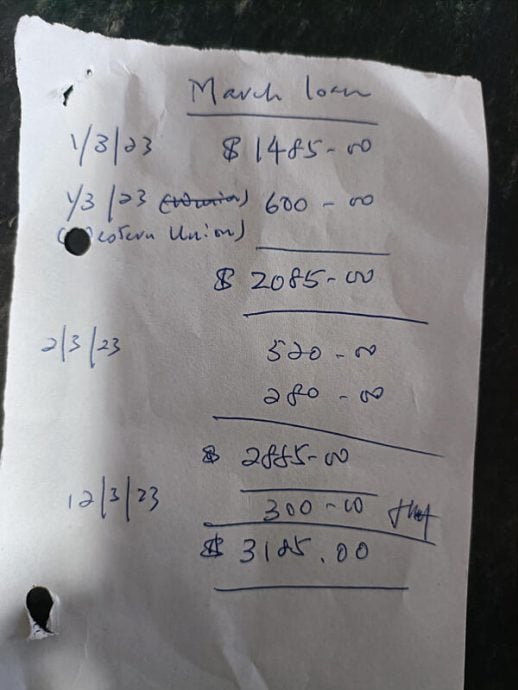 March loan
1/3/23 $ 1485-00
1/3/23 600-00
(Western Union)
$ 2085-00
2/3/23 520-00
280-00
$ 2885-00
12/3/23 300-00
$ 3185.00